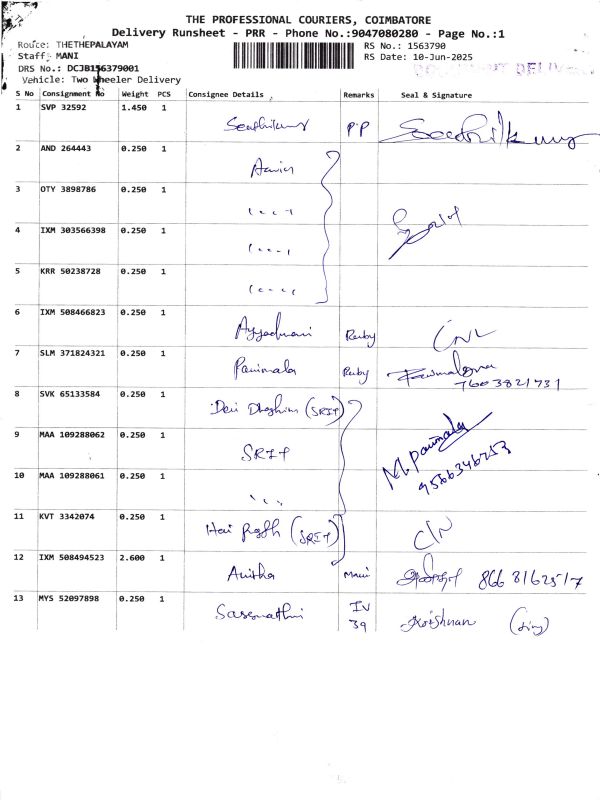 THE PROFESSIONAL COURIERS, COIMBATORE
Delivery Runsheet - PRR - Phone No.:9047080280 - Page No.:1
Route: THETHEPALAYAM
Staff: MANI
DRS No.: DCJB156379001
Vehicle: Two Wheeler Delivery
RS No.: 1563790
RS Date: 10-Jun-2025
S No Consignment No Weight PCS Consignee Details Remarks Seal & Signature
1 SVP 32592 1.450 1 Senthilkumar P.P
2 AND 264443 0.250 1
3 OTY 3898786 0.250 1
4 IXM 303566398 0.250 1
5 KRR 50238728 0.250 1
6 IXM 508466823 0.250 1 Ruby
7 SLM 371824321 0.250 1 Panimala Ruby 7603821731
8 SVK 65133584 0.250 1 (SRIT)
9 MAA 109288062 0.250 1 SRIT M. Panimala 9566346253
10 MAA 109288061 0.250 1
11 KVT 3342074 0.250 1 (SRIT)
12 IXM 508494523 2.600 1 Anitha 8668162517
13 MYS 52097898 0.250 1 IV 39 Krishnan